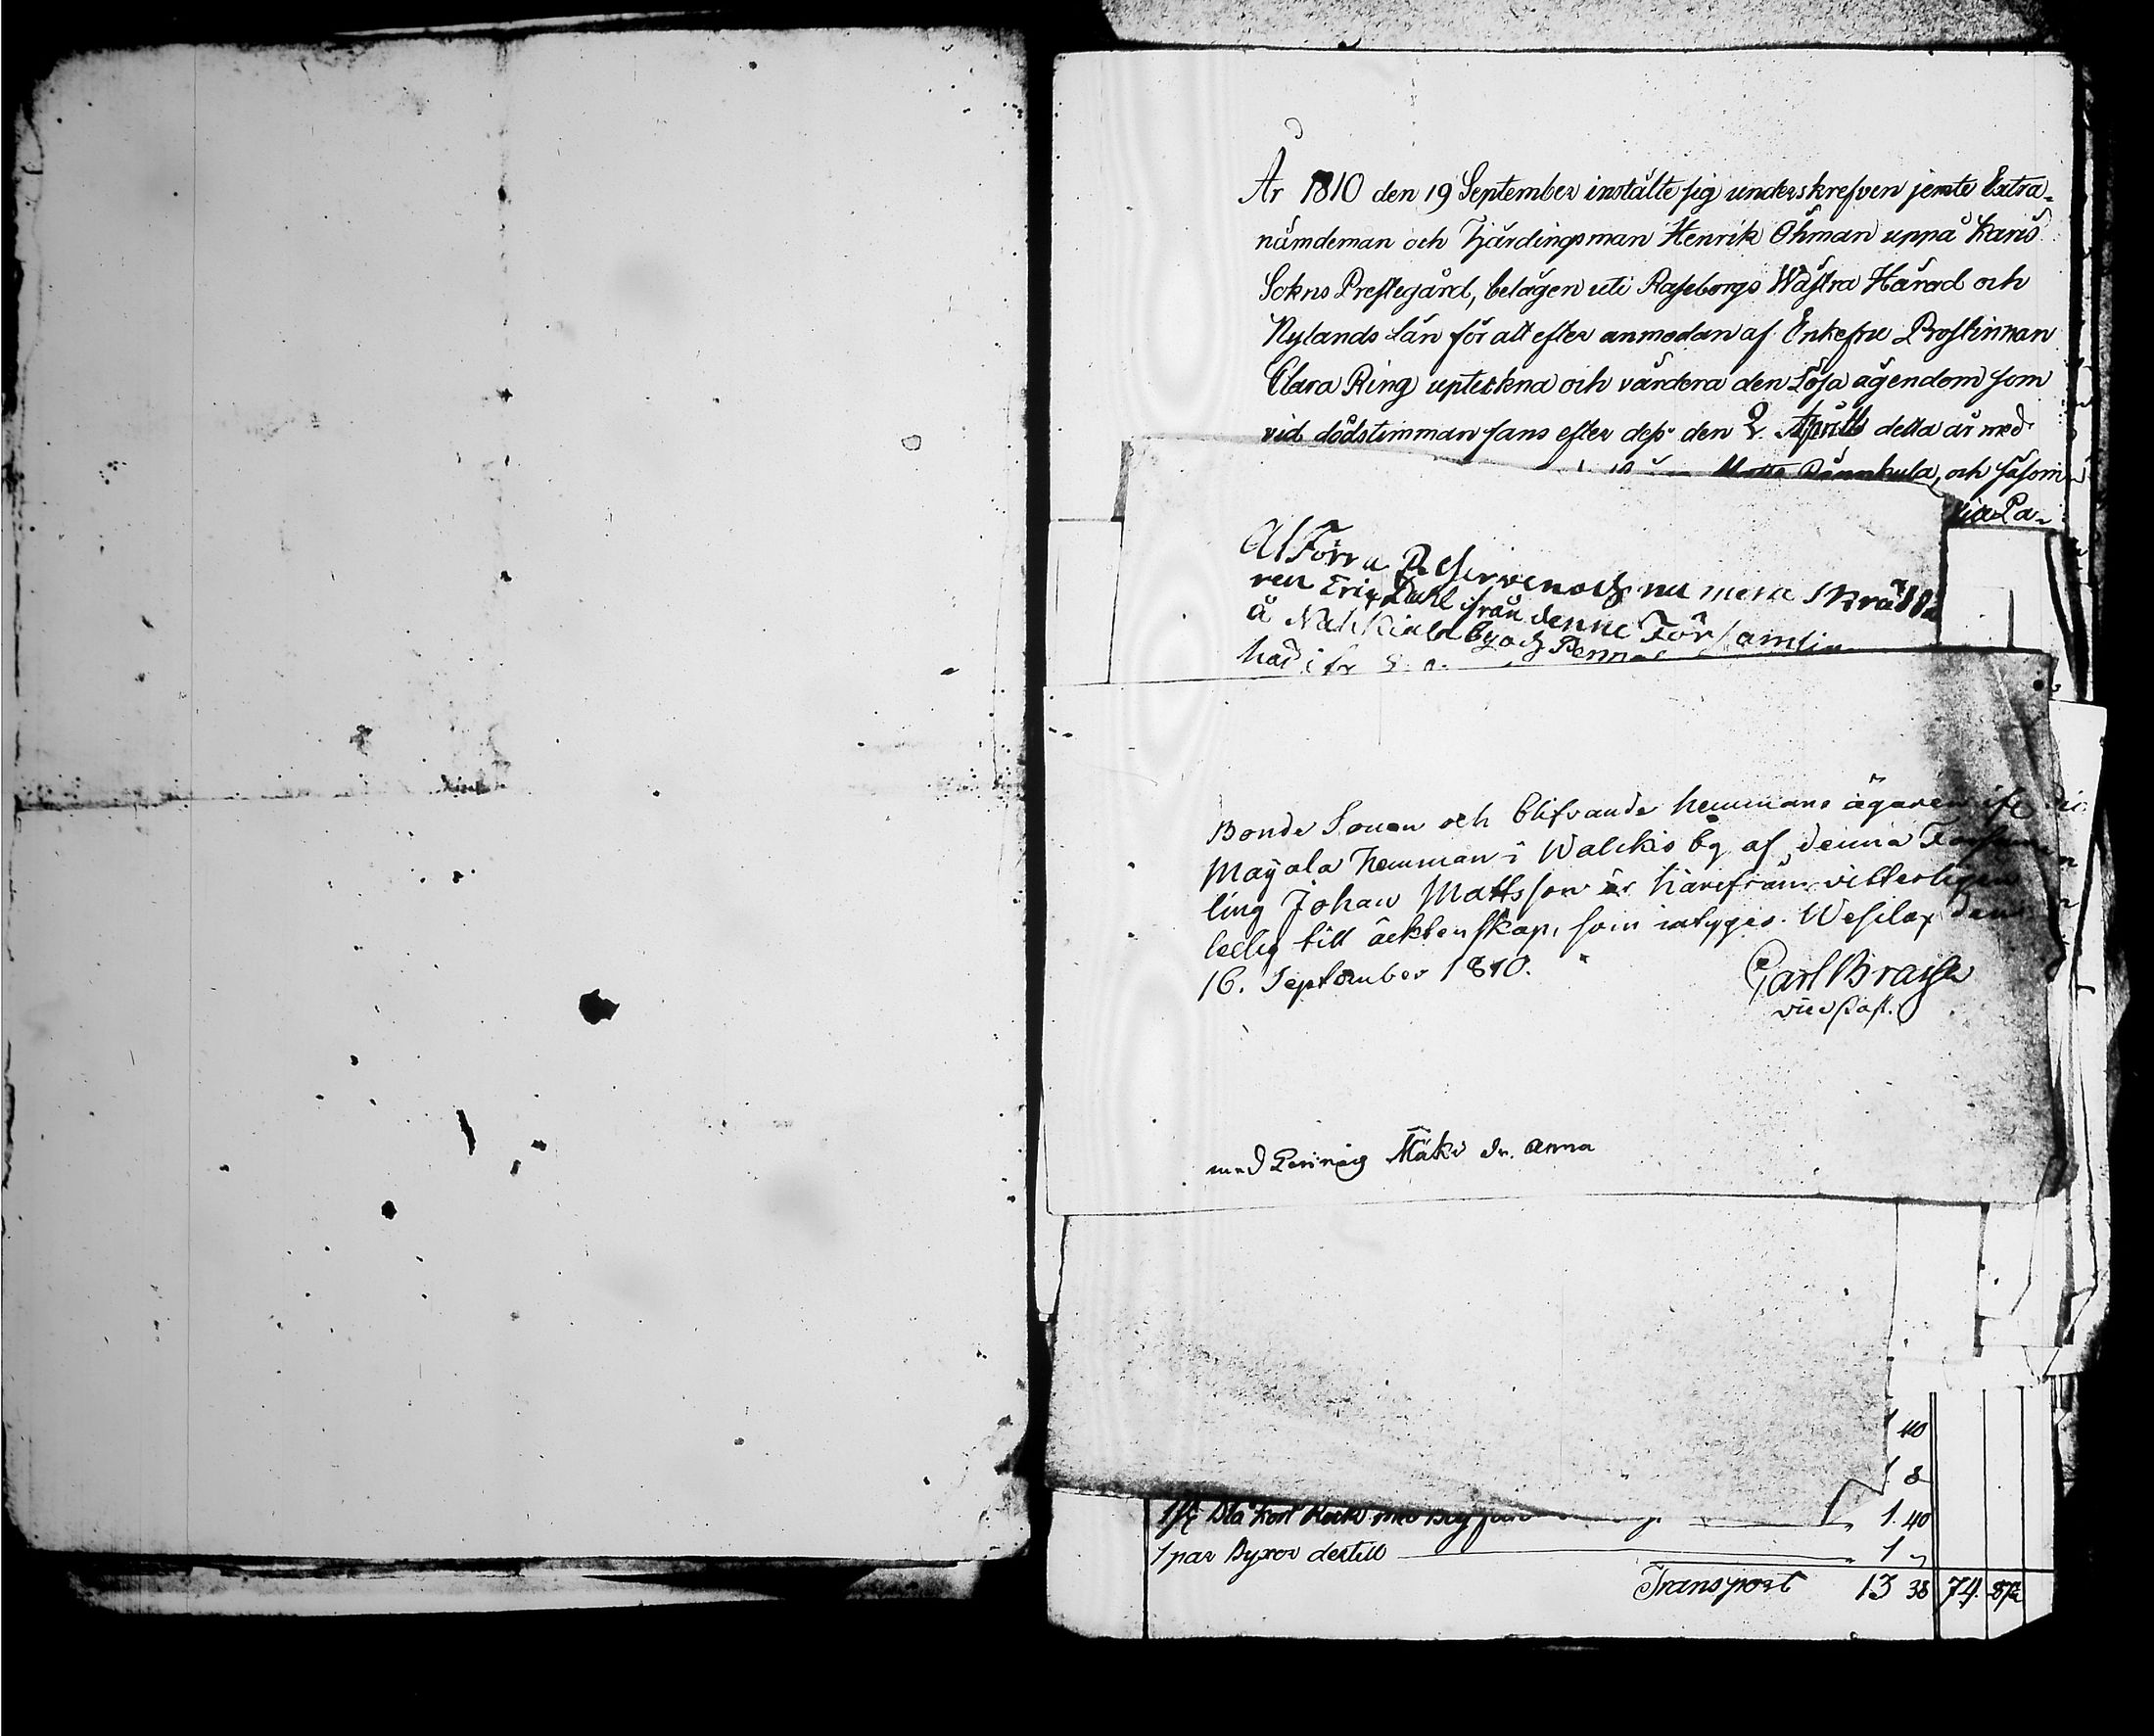 År 1810 den 19 September instälte sig underskrefven jemte Extra-
nämdeman och Fjärdingsman Henrik Öhman uppå Karis
Sokns Prestegård, belägen uti Raseborgs Wästra Härad och
Nylands Län för att efter anmodan af Enkefru Prostinnan
Clara Ring upteckna och värdera den Lösa ägendom som
vid dödstimman fans efter dess den 2. Aprill detta år med
och såsom
Pa-
Förra och nu mera
ren Eric Dahl ifrån denne Församlin
å by och
Bonde Sonen och blifvande hemmans ägaren
Mayala Hemman i Walckis by af denna Forsam
ling Johan Mattsson är härifrån vitterligen
ledig till äcktenskap, som intygas. Wesilax den
16. September 1810.
Carl
vice Past.
med Mäki dr. Anna
40
8
1 st Blå kort 1. 40
1 par Byxor dertill 1 "
Transport 13 38 74.